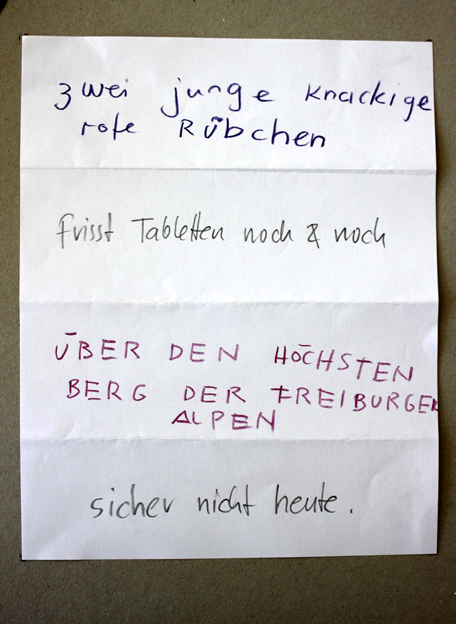 zwei junge knackige
rote Rübchen
frisst Tabletten noch & noch
ÜBER DEN HÖCHSTEN
BERG DER FREIBURGER
ALPEN
sicher nicht heute.